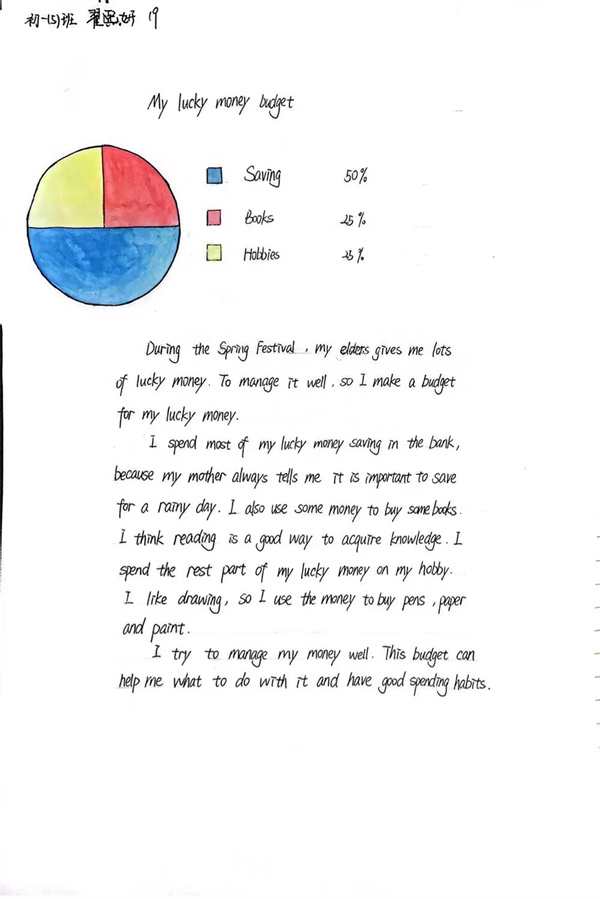 初一(5)班 翟思妤 19
My lucky money budget
Saving 50%
Books 25%
Hobbies 25%
During the Spring Festival, my elders gives me lots
of lucky money. To manage it well, so I make a budget
for my lucky money.
I spend most of my lucky money saving in the bank,
because my mother always tells me it is important to save
for a rainy day. I also use some money to buy some books.
I think reading is a good way to acquire knowledge. I
spend the rest part of my lucky money on my hobby.
I like drawing, so I use the money to buy pens, paper
and paint.
I try to manage my money well. This budget can
help me what to do with it and have good spending habits.